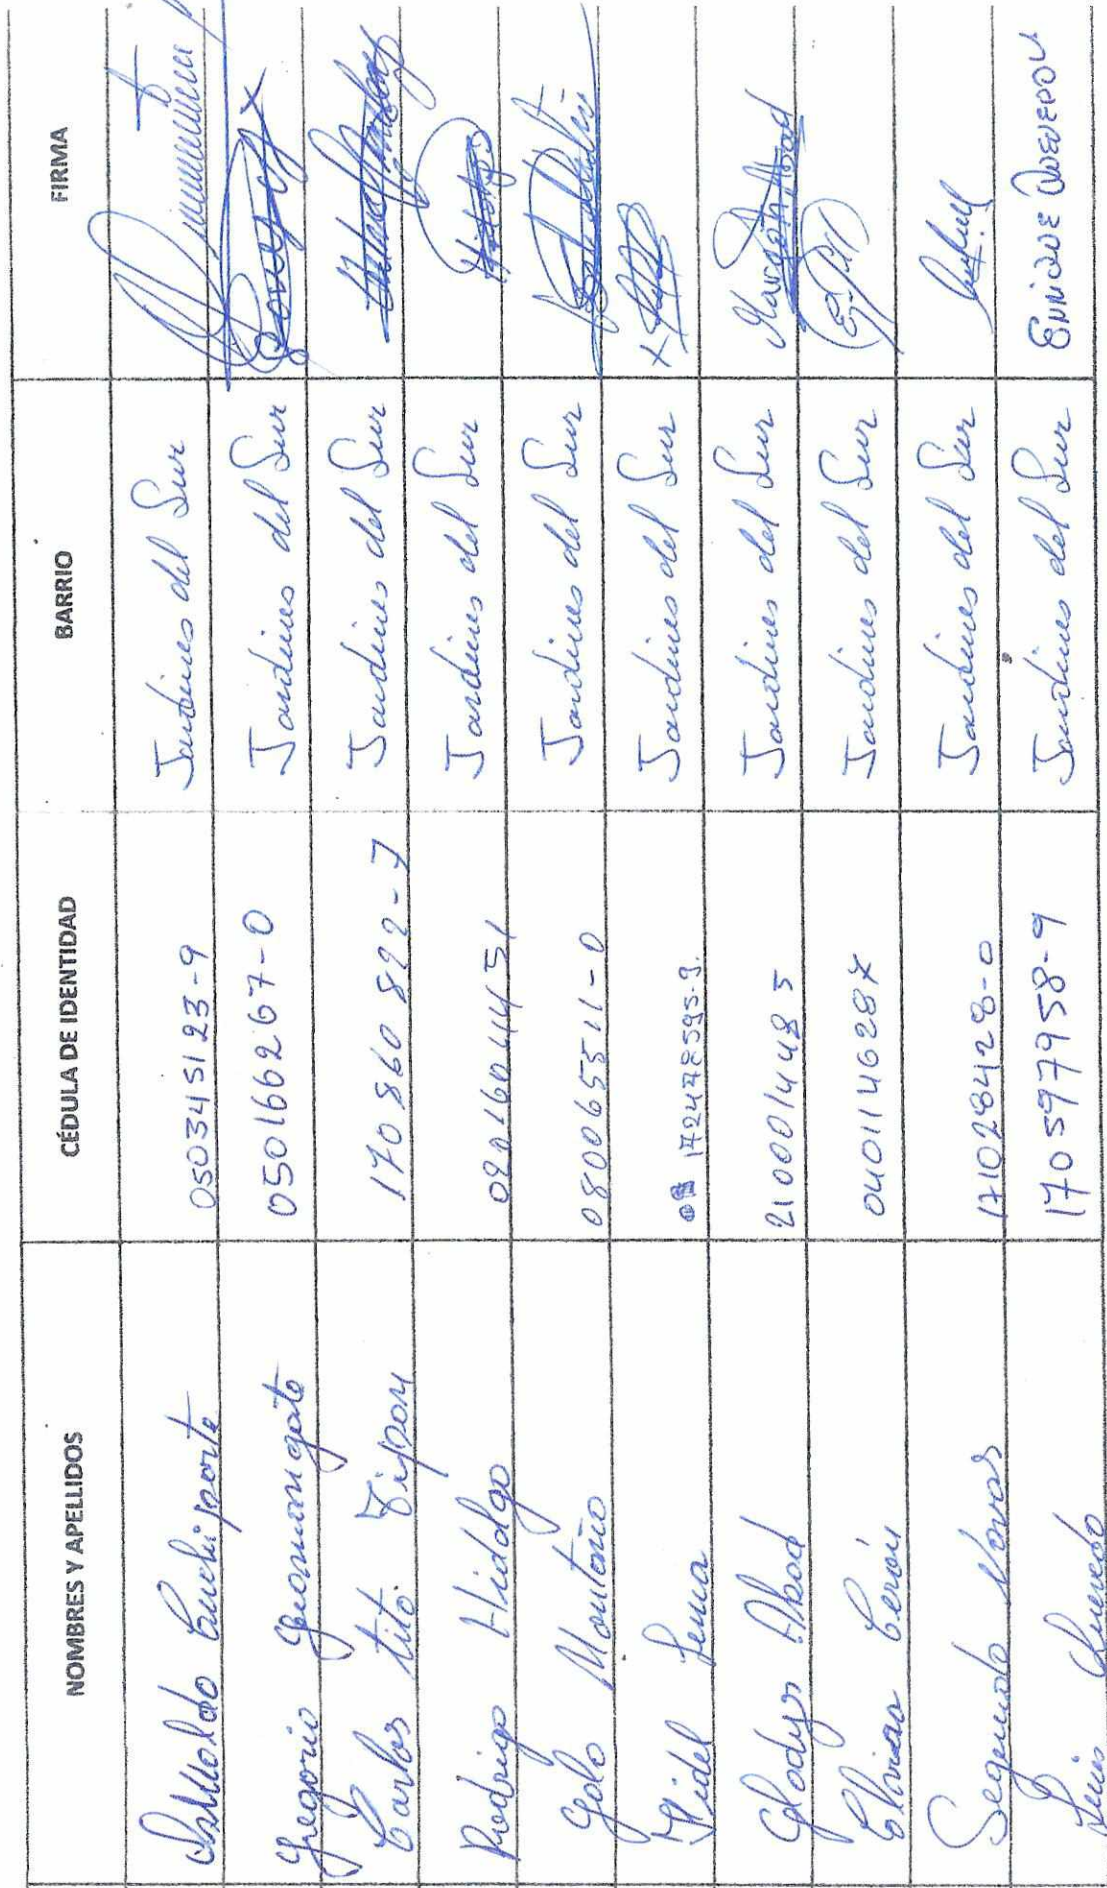 NOMBRES Y APELLIDOS CÉDULA DE IDENTIDAD BARRIO FIRMA
050345123-9 Jardines del Sur
Gregorio Guamangate 050166267-0 Jardines del Sur
Carlos Tito Tipon 170860822-7 Jardines del Sur
Rodrigo Hidalgo Jardines del Sur Hidalgo
Galo Montaño 080065511-0 Jardines del Sur
Fidel Lema 172478595-9. Jardines del Sur
Gladys Abad 2100014485 Jardines del Sur Margoth Abad
Cerón 0401146287 Jardines del Sur
Segundo Navas 171028428-0 Jardines del Sur
Luis Quevedo 170597958-9 Jardines del Sur ENRIQUE QUEVEDO